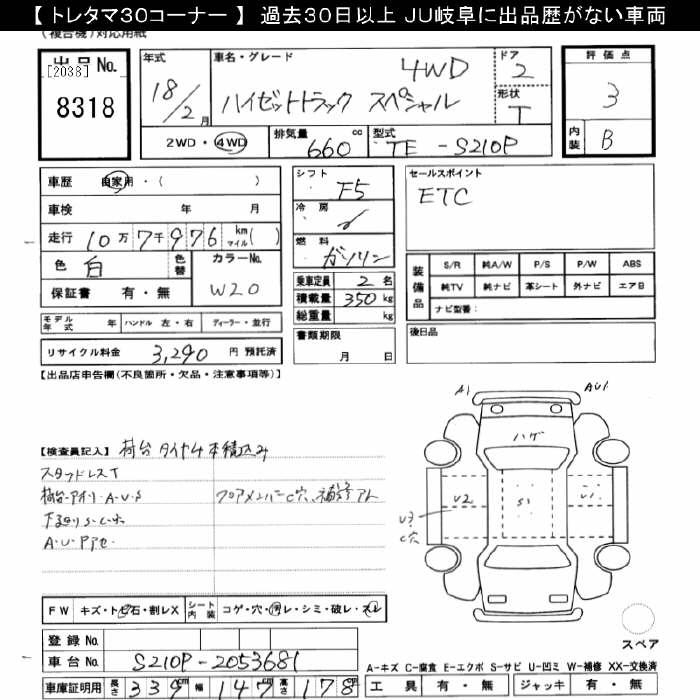 【 トレタマ30コーナー 】 過去30日以上 JU岐阜に出品歴がない車両
(複合機)対応用紙
出品No.
[2038]
8318
年式
18/2月
車名・グレード
4WD
ハイゼットトラック スペシャル
ドア
2
形状
T
評価点
3
内装
B
2WD・4WD
排気量
660
cc
型式
TE - S210P
車歴 自家用・( )
車検 年 月
走行 10万7千976 km マイル( )
色 白
色替
カラーNo.
W20
保証書 有・無
シフト
F5
冷房
燃料
ガソリン
乗車定員 2 名
積載量 350 kg
総重量 kg
書類期限
月 日
セールスポイント
ETC
装備品
S/R 純A/W P/S P/W ABS
純TV 純ナビ 革シート 外ナビ エアB
ナビ型番:
後日品
モデル年式 年 ハンドル 左・右 ディーラー・並行
リサイクル料金 3,290 円 預託済
【出品店申告欄(不良箇所・欠品・注意事項等)】
【検査員記入】 荷台 タイヤ4本積込み
スタッドレスT
荷台・アオリ・A・V・S
下回りS・C・
A・U・Pアセ
フロアメンバーC穴、補修アト
A1
AU1
ハゲ
U2
S1
U1
U3
C穴
FW キズ・トビ石・割レX
シート内装 コゲ・穴・汚レ・シミ・破レ・スレ
登録No.
車台No. S210P-2053681
車庫証明用 長さ 339cm 幅 147cm 高さ 178cm
スペア
A-キズ C-腐食 E-エクボ S-サビ U-凹ミ W-補修 XX-交換済
工具 有・無 ジャッキ 有・無